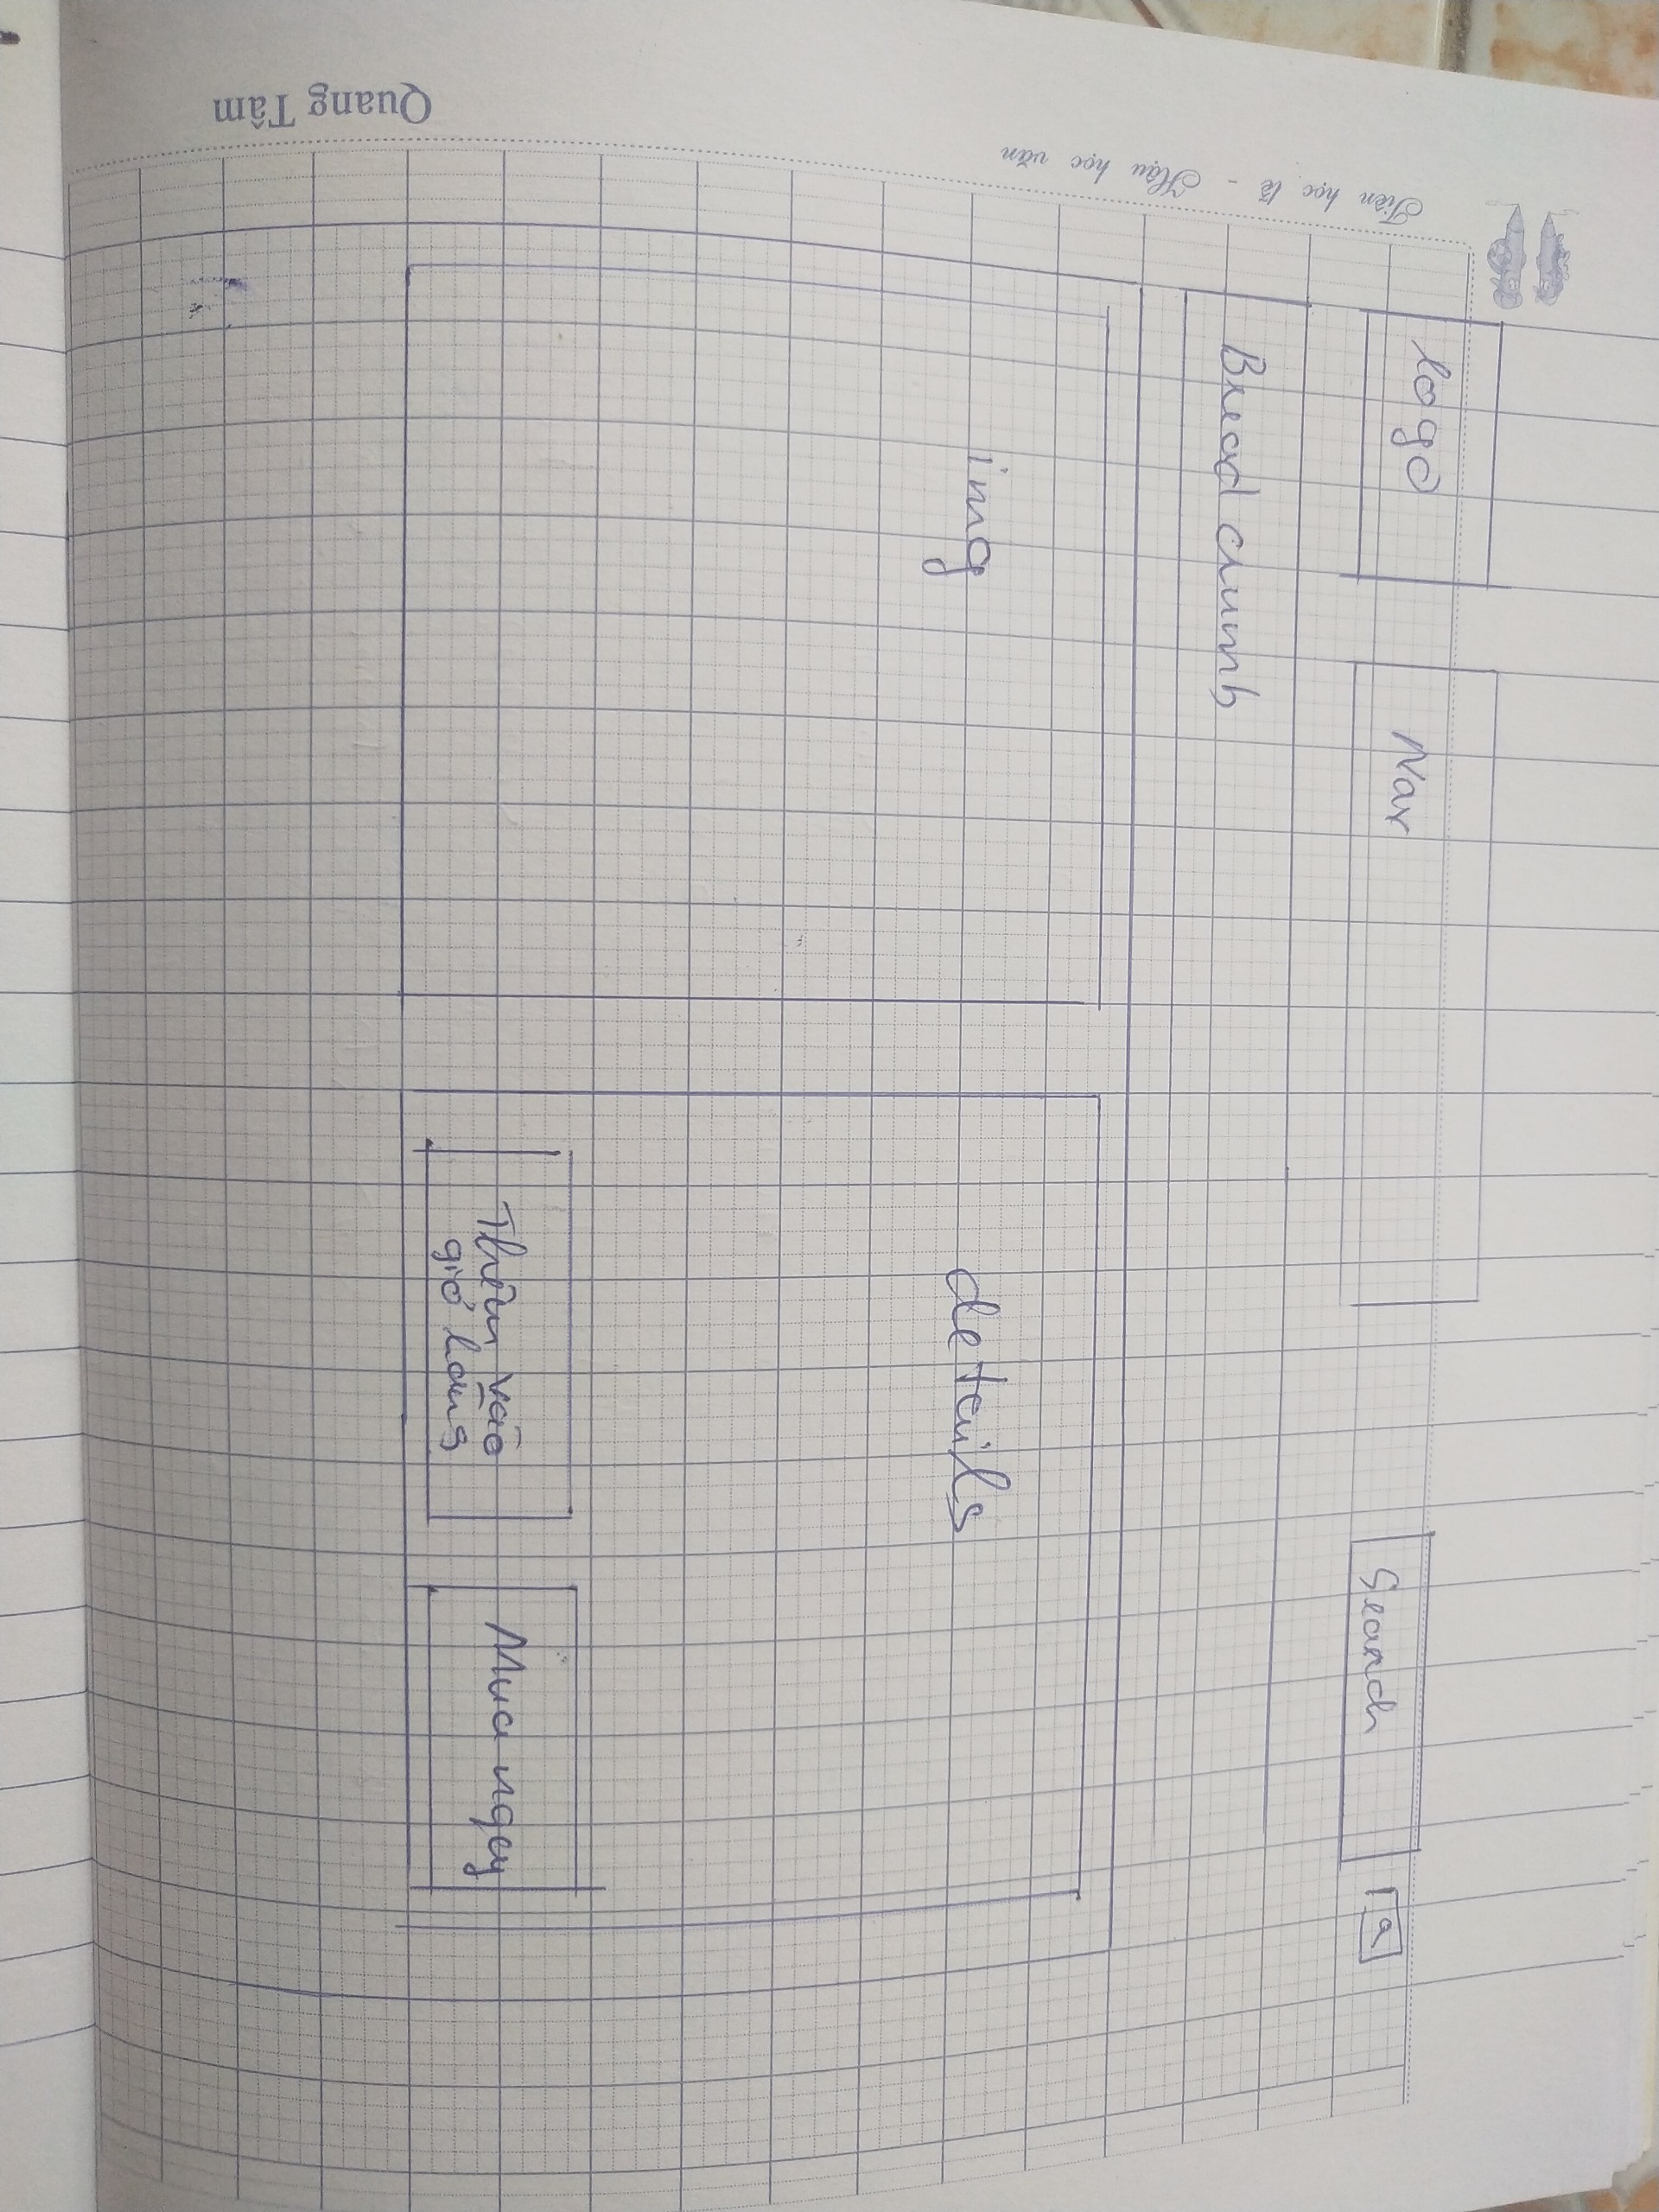 logo
Nav
Search
Bread crumb
img
details
Thêm vào
giỏ hàng
Mua ngay
Tiên học lễ - Hậu học văn
Quang Tâm